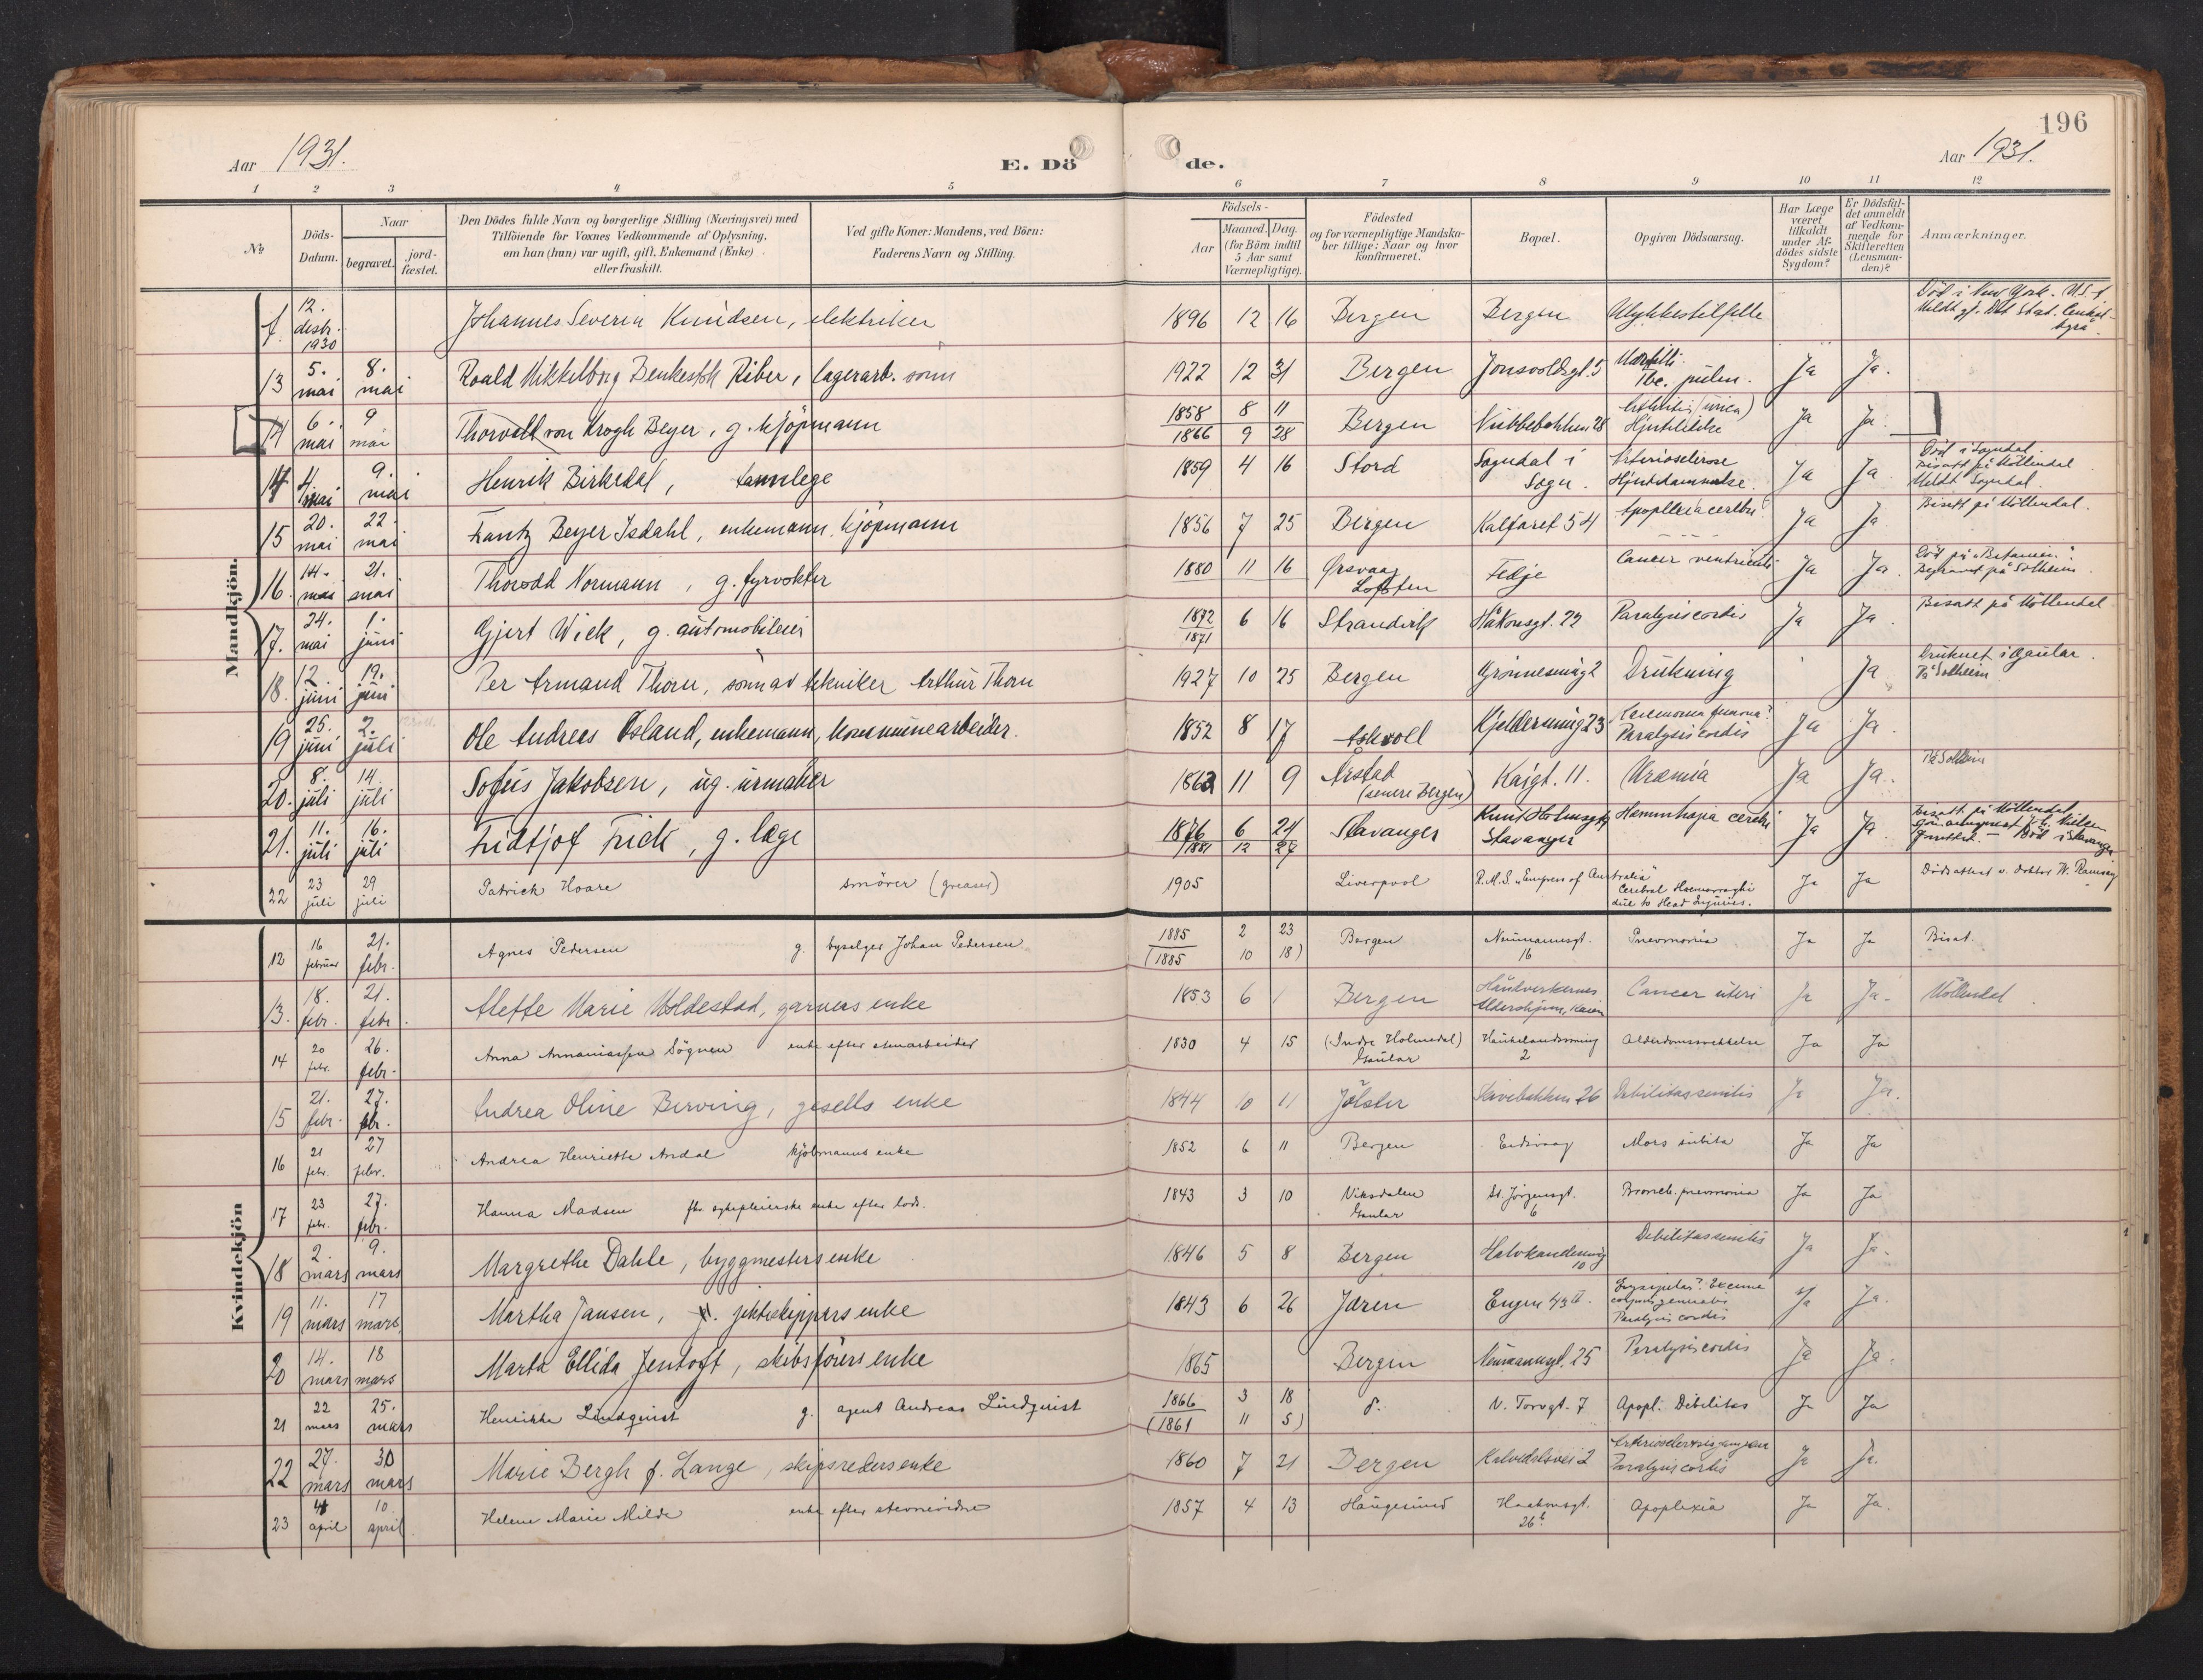 196
Aar 1931.
E. Dö
de.
Aar 1931.
1 2 3 4 5 6 7 8 9 10 11 12
No
Döds-Datum.
Naar
begravet.
jord-fæstet.
Den Dödes fulde Navn og borgerlige Stilling (Næringsvei) med
Tilföiende for Voxnes Vedkommende af Oplysning,
om han (hun) var ugift, gift, Enkemand (Enke)
eller fraskilt.
Ved gifte Koner: Mandens, ved Börn:
Faderens Navn og Stilling.
Födsels-
Aar
Maaned. Dag.
(for Börn indtil
5 Aar samt
Værnepligtige).
Födested
og for værnepligtige Mandska-
ber tillige: Naar og hvor
konfirmeret.
Bopæl.
Opgiven Dödsaarsag.
Har Læge
været
tilkaldt
under Af-
dödes sidste
Sygdom?
Er Dödsfal-
det anmeldt
af Vedkom-
mende for
Skifteretten
(Lensman-
den)?
Anmærkninger.
Mandkjön.
f. 12. desbr. 1930 Johannes Severin Knudsen, elektriker 1896 12 16 Bergen Bergen Ulykkestilfelle Död i New York. U.S.A
Meldt gj. Det Stat. Centralbyrå
13 5. mai 8. mai Roald Mikkelborg Benkestok Riber, lagerarb. sönn 1922 12 31 Bergen Jonsvoldsgt. 5 Tbc. pulm. Ja Ja.
14 6. mai 9 mai Thorvald von Krogh Beyer, g. kjöpmann 1858 8 11 1866 9 28 Bergen Nubbebakken 28 Ja Ja.
14 4. mai 9. mai Henrik Birkedal, tannlege 1859 4 16 Stord Sogndal i Sogn. Arteriosclerose Ja Ja. Död i Sogndal.
Bisatt på Möllendal
Meldt Sogndal.
15 20. mai 22. mai Frantz Beyer Isdahl, enkemann, kjöpmann 1856 7 25 Bergen Kalfaret 54 Apoplexia cerebri Ja Ja Bisatt på Möllendal.
16. 14. mai 21. mai Thorodd Normann, g. fyrvokter 1880 11 16 Ørsvaag Lofoten Fedje Cancer ventriculi Ja Ja. Död på "Betanien".
Begravet på Solheim.
17. 24. mai 1. juni Gjert Wiek, g. automobileier 1872 1871 6 16 Strandvik Håkonsgt. 22 Paralysis cordis Ja Ja. Bisatt på Möllendal
18. 12. juni 19. juni Per Armand Thorn, sönn av tekniker Arthur Thorn 1927 10 25 Bergen Drukning Ja Druknet i Gaular.
På Solheim
19 25. juni 2. juli Ole Andreas Osland, enkemann, kommunearbeider. 1852 8 17 Askvoll Kjeldersmug 23 Paralysis cordis Ja Ja.
20. 8. juli 14. juli Sofus Jakobsen, ug. urmaker 1862 11 9 Årstad
(senere Bergen) Kaigt. 11. Uræmia Ja Ja. På Solheim
21. 11. juli 16. juli Fridtjof Frick, g. læge 1876 6 24 1881 12 27 Stavanger Stavanger Hæmorrhagia cerebri Ja Ja. Bisatt på Möllendal
Död i Stavanger
22 23 juli 29 juli Patrick Hoare smörer (greaser) 1905 Liverpool R.M.S. "Empress of Australia" Cerebral Haemorraghi
due to Head Injuries. Ja Ja Dödsattest v. doktor W. Ramsay
Kvindekjön
12 16 februar 21. febr. Agnes Pedersen g. byselger Johan Pedersen 1885 2 23 (1885 10 18) Bergen Neumannsgt. 16 Pneumonia Ja Ja Bisat.
13. 18. febr. 21. febr. Alette Marie Moldestad, garvers enke 1853 6 1 Bergen Håndverkernes Aldershjem, Cancer uteri Ja Ja. Möllendal
14 20 febr. 26. febr. Anna Annaniassen Sögnen enke efter stenarbeider 1830 4 15 (Indre Holmedal)
Gaular Haukelandssmug 2 Alderdomssvekkelse Ja Ja
15 21. febr. 27. febr. Andrea Oline Berving, gesells enke 1844 10 11 Jölster 26 Debilitas senilis Ja Ja.
16 21 febr. 27 febr. Andrea Henriette Andal kjöbmanns enke 1852 6 11 Bergen Eidsvaag Mors subita Ja Ja
17 23 febr. 27. febr. Hanna Madsen fhv. sykepleierske enke efter lods. 1843 3 10 Viksdalen
Gaular St. Jörgensgt. 6 Bronch. pneumonia Ja Ja
18 2. mars 9. mars Margrethe Dahle, byggmesters enke 1846 5 8 Bergen Halvkandesmug 10 Debilitas senilis Ja Ja.
19 11. mars 17 mars. Martha Jansen, jekteskippers enke 1843 6 26 Jæren Engen 43 II. Paralysis cordis Ja Ja.
20 14. mars 18 mars Marta Ellida Jentoft, skibsförers enke 1865 Bergen Neumannsgt. 25 Paralysis cordis Ja Ja.
21 22 mars 25. mars Henrikke Lindquist g. agent Andreas Lindquist 1866 3 18 (1861 11 5) d. V. Torvgt. 7 Apopl. Debilitas Ja Ja
22 27. mars 30 mars Marie Bergh f. Lange, skipsreders enke 1860 7 21 Bergen Kalvedalsvei 2 Paralysis cordis Ja Ja.
23 4 april 10. april Helene Marie Milde enke efter stevnevidne 1857 4 13 Haugesund Haakonsgt. 26b Apoplexia Ja Ja.